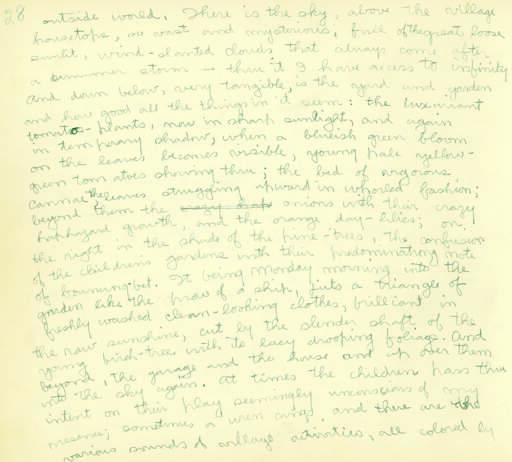 28 outside world. There is the sky, above the village
housetops, so vast and mysterious, full of the great loose
sunlit, wind-slanted clouds that always come after
a summer storm — thru it I have access to infinity
and down below, very tangible, is the yard and garden
and how good all the things in it seem: the luxuriant
tomato-plants, now in sharp sunlight, and again
in temporary shadow, when a blueish green bloom
on the leaves becomes visible, young pale yellow-
green tomatoes showing thru; the bed of vigorous
cannas, the leaves struggling upward in whorled fashion;
beyond them the crazy onions with their crazy
haphazard growth, and the orange day-lilies; on
the right in the shade of the pine-trees, the confusion
of the children's gardens with their predominating note
of bouncing-bet. It being monday morning into the
garden like the prow of a ship, juts a triangle of
freshly washed clean-looking clothes, brilliant in
the raw sunshine, cut by the slender shaft of the
young birch-tree with its lacy drooping foliage. And
beyond, the garage and the house and up over them
into the sky again. At times the children pass thru
intent on their play seemingly unconscious of my
presence; sometimes a wren sings. and there are the
various sounds of village activities, all colored by